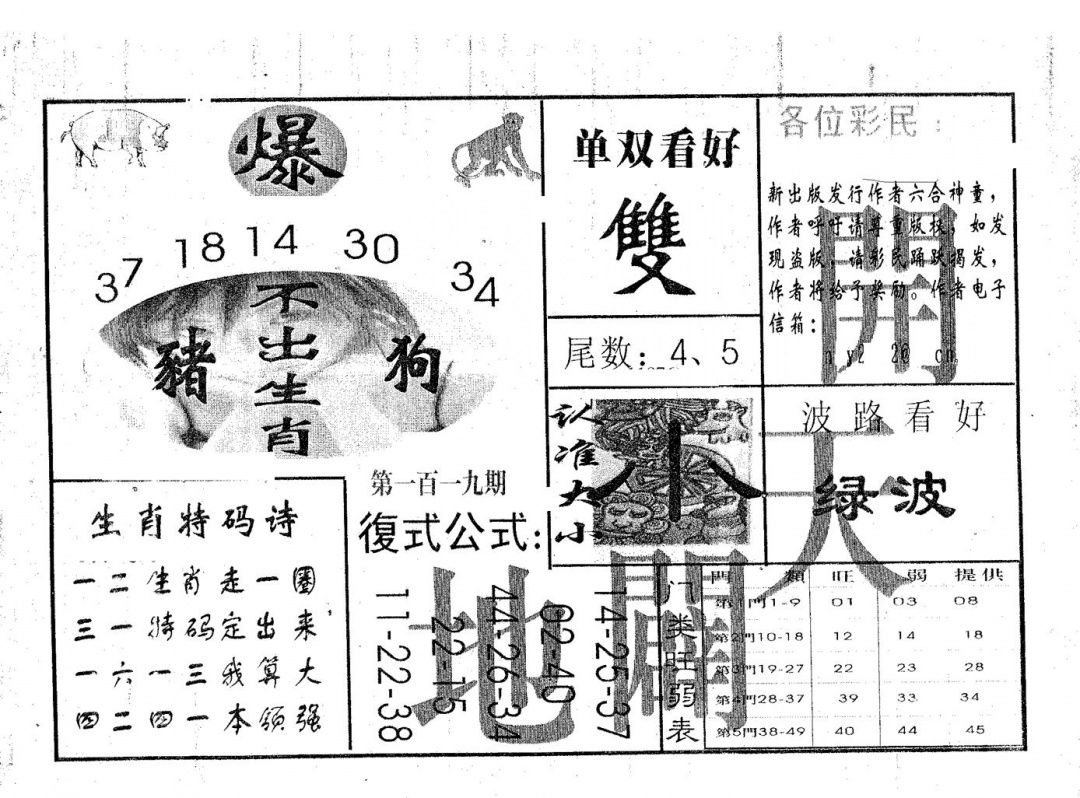 爆
37 18 14 30 34
不出生肖
豬
狗
单双看好
雙
尾数：4、5
各位彩民：
新出版发行作者六合神童，
作者呼吁请尊重版权，如发
现盗版，请彩民踊跃揭发，
作者将给予奖励。作者电子
信箱：
認准大小
小
波路看好
绿波
開天
闢地
生肖特码诗
一二生肖走一圈
三一特码定出来，
一六一三我算大
四二四一本领强
第一百一九期
復式公式：
14-25-37
02-40
44-26-34
22-15
11-22-38
门类旺弱表
門類 旺 弱 提供
第1門1-9 01 03 08
第2門10-18 12 14 18
第3門19-27 22 23 28
第4門28-37 39 33 34
第5門38-49 40 44 45